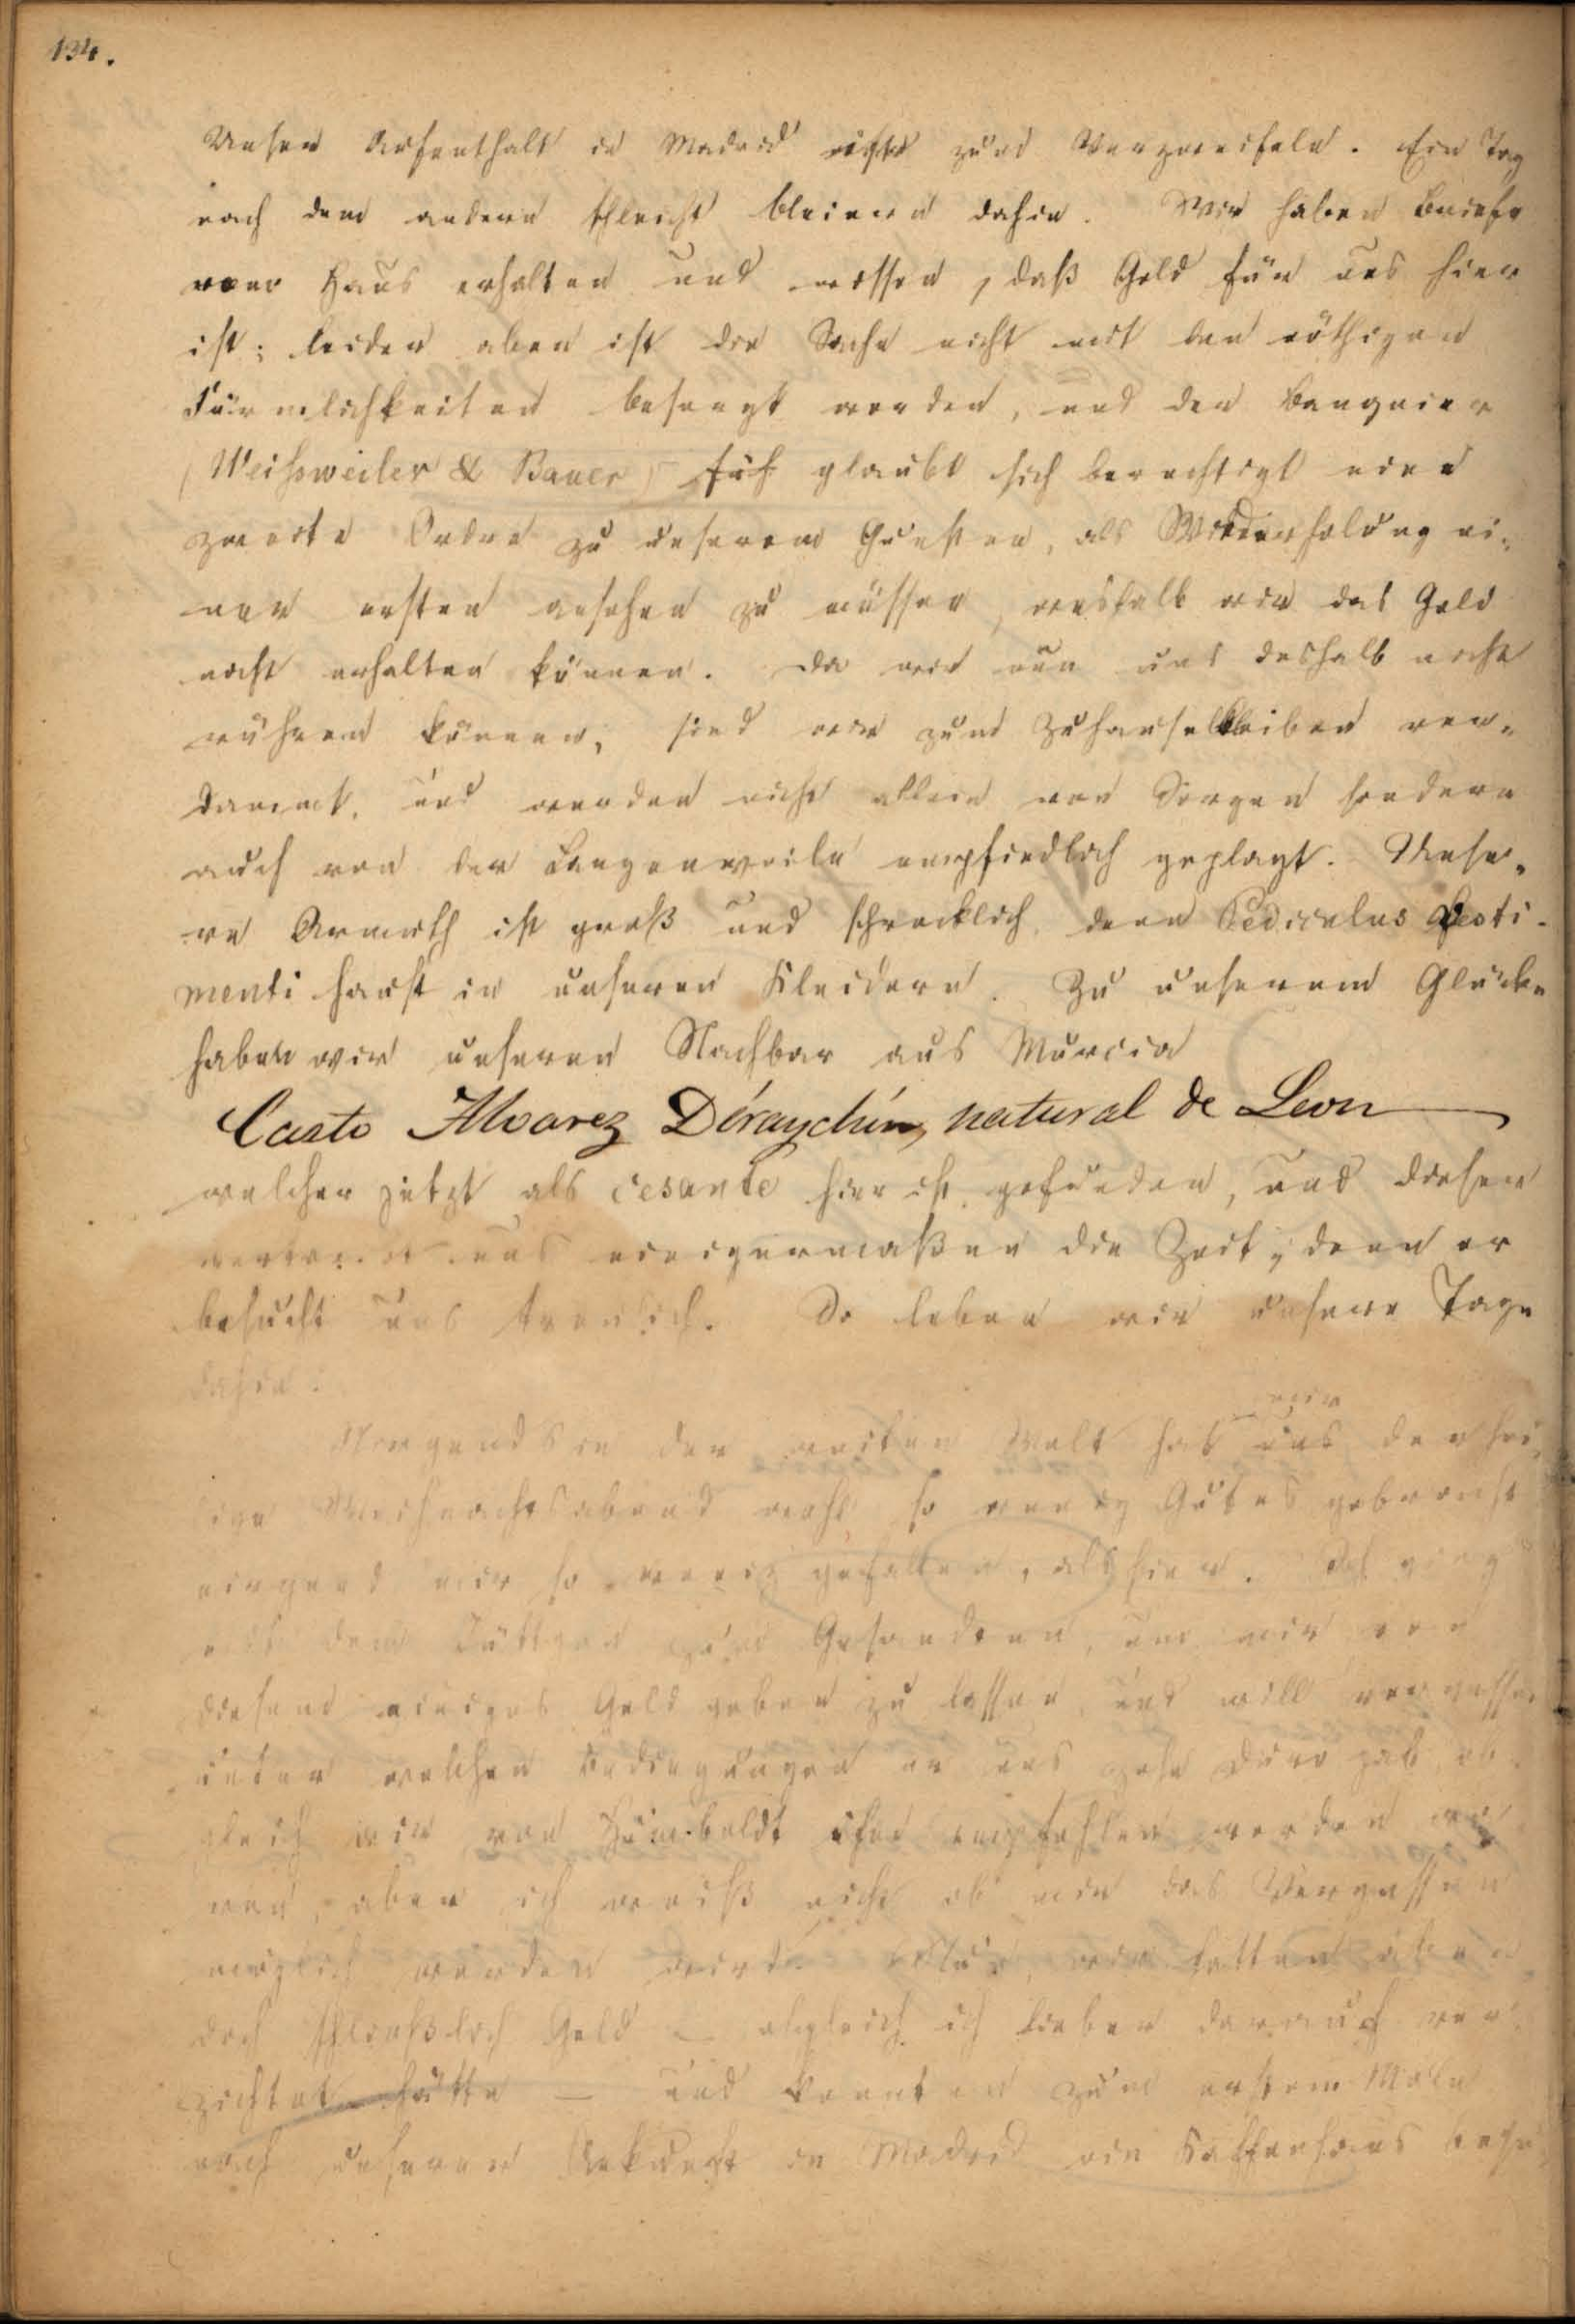 134.
Unser Aufenthalt in Madrid ist zum Verzweifeln. Ein Tag
nach dem andern schleicht bleiern dahin. Wir haben Briefe
von Haus erhalten und wissen, daß Geld für uns hier
ist; leider aber ist die Sache nicht mit den nöthigen
Förmlichkeiten besorgt worden, und der Banquier
(Weissweiler & Bauer) glaubt sich berechtigt eine
zweite Ordre zu unserem Gunsten, als Wiederholung ei-
ner ersten ansehen zu müssen, weshalb wir das Geld
nicht erhalten können. Da wir nun uns deshalb nicht
rühren können, sind wir zum Zuhausebleiben ver-
dammt, und werden nicht allein von Sorgen sondern
auch von der Langenweile empfindlich geplagt. Unse-
re Armuth ist groß und schrecklich, denn Pediculus vesti-
menti haust in unseren Kleidern. Zu unserem Glücke
haben wir unseren Nachbar aus Murcia
Casto Alvarez Deraychin, natural de Leon
welcher jetzt als cesante hier ist, gefunden, und dieser
vertreibt uns einigermaßen die Zeit; denn er
besucht uns treulich. So leben wir unsere Tage
dahin.
Nirgends in der weiten Welt hat uns der hei-
lige Weihnachtsabend wohl so wenig Gutes gebracht
nirgend mir so wenig gefallen, als hier. Ich ging
mit dem zum Gesandten, um mir von
diesem einiges Geld geben zu lassen, und will vergessen
unter welchen Bedingungen er uns zehn Duro gab, ob-
gleich wir von Humboldt ihm empfohlen worden wa-
ren, aber ich weiß nicht ob mir das Vergessen
möglich werden wird. wir hatten aber
doch schließlich Geld – obgleich ich lieber darauf ver-
zichtet hätte – und konnten zum erstem Male
nach unserer Ankunft in Madrid ein Kaffeehaus besu-